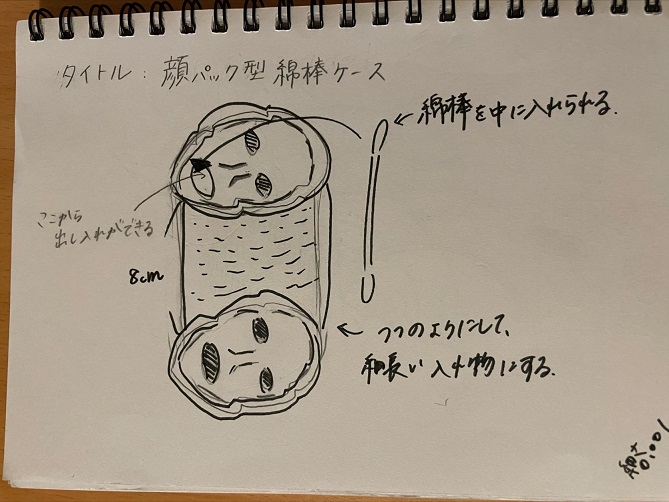 タイトル：顔パック型綿棒ケース
←綿棒を中に入れられる.
ここから
出し入れができる
8cm
←つつのようにして、
細長い入れ物にする.